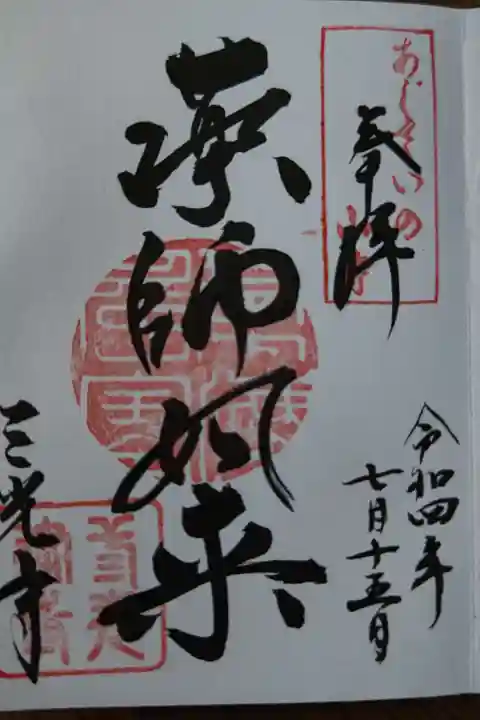 あじさいの山寺
奉拝
令和四年
七月十五日
薬師如来
三光寺